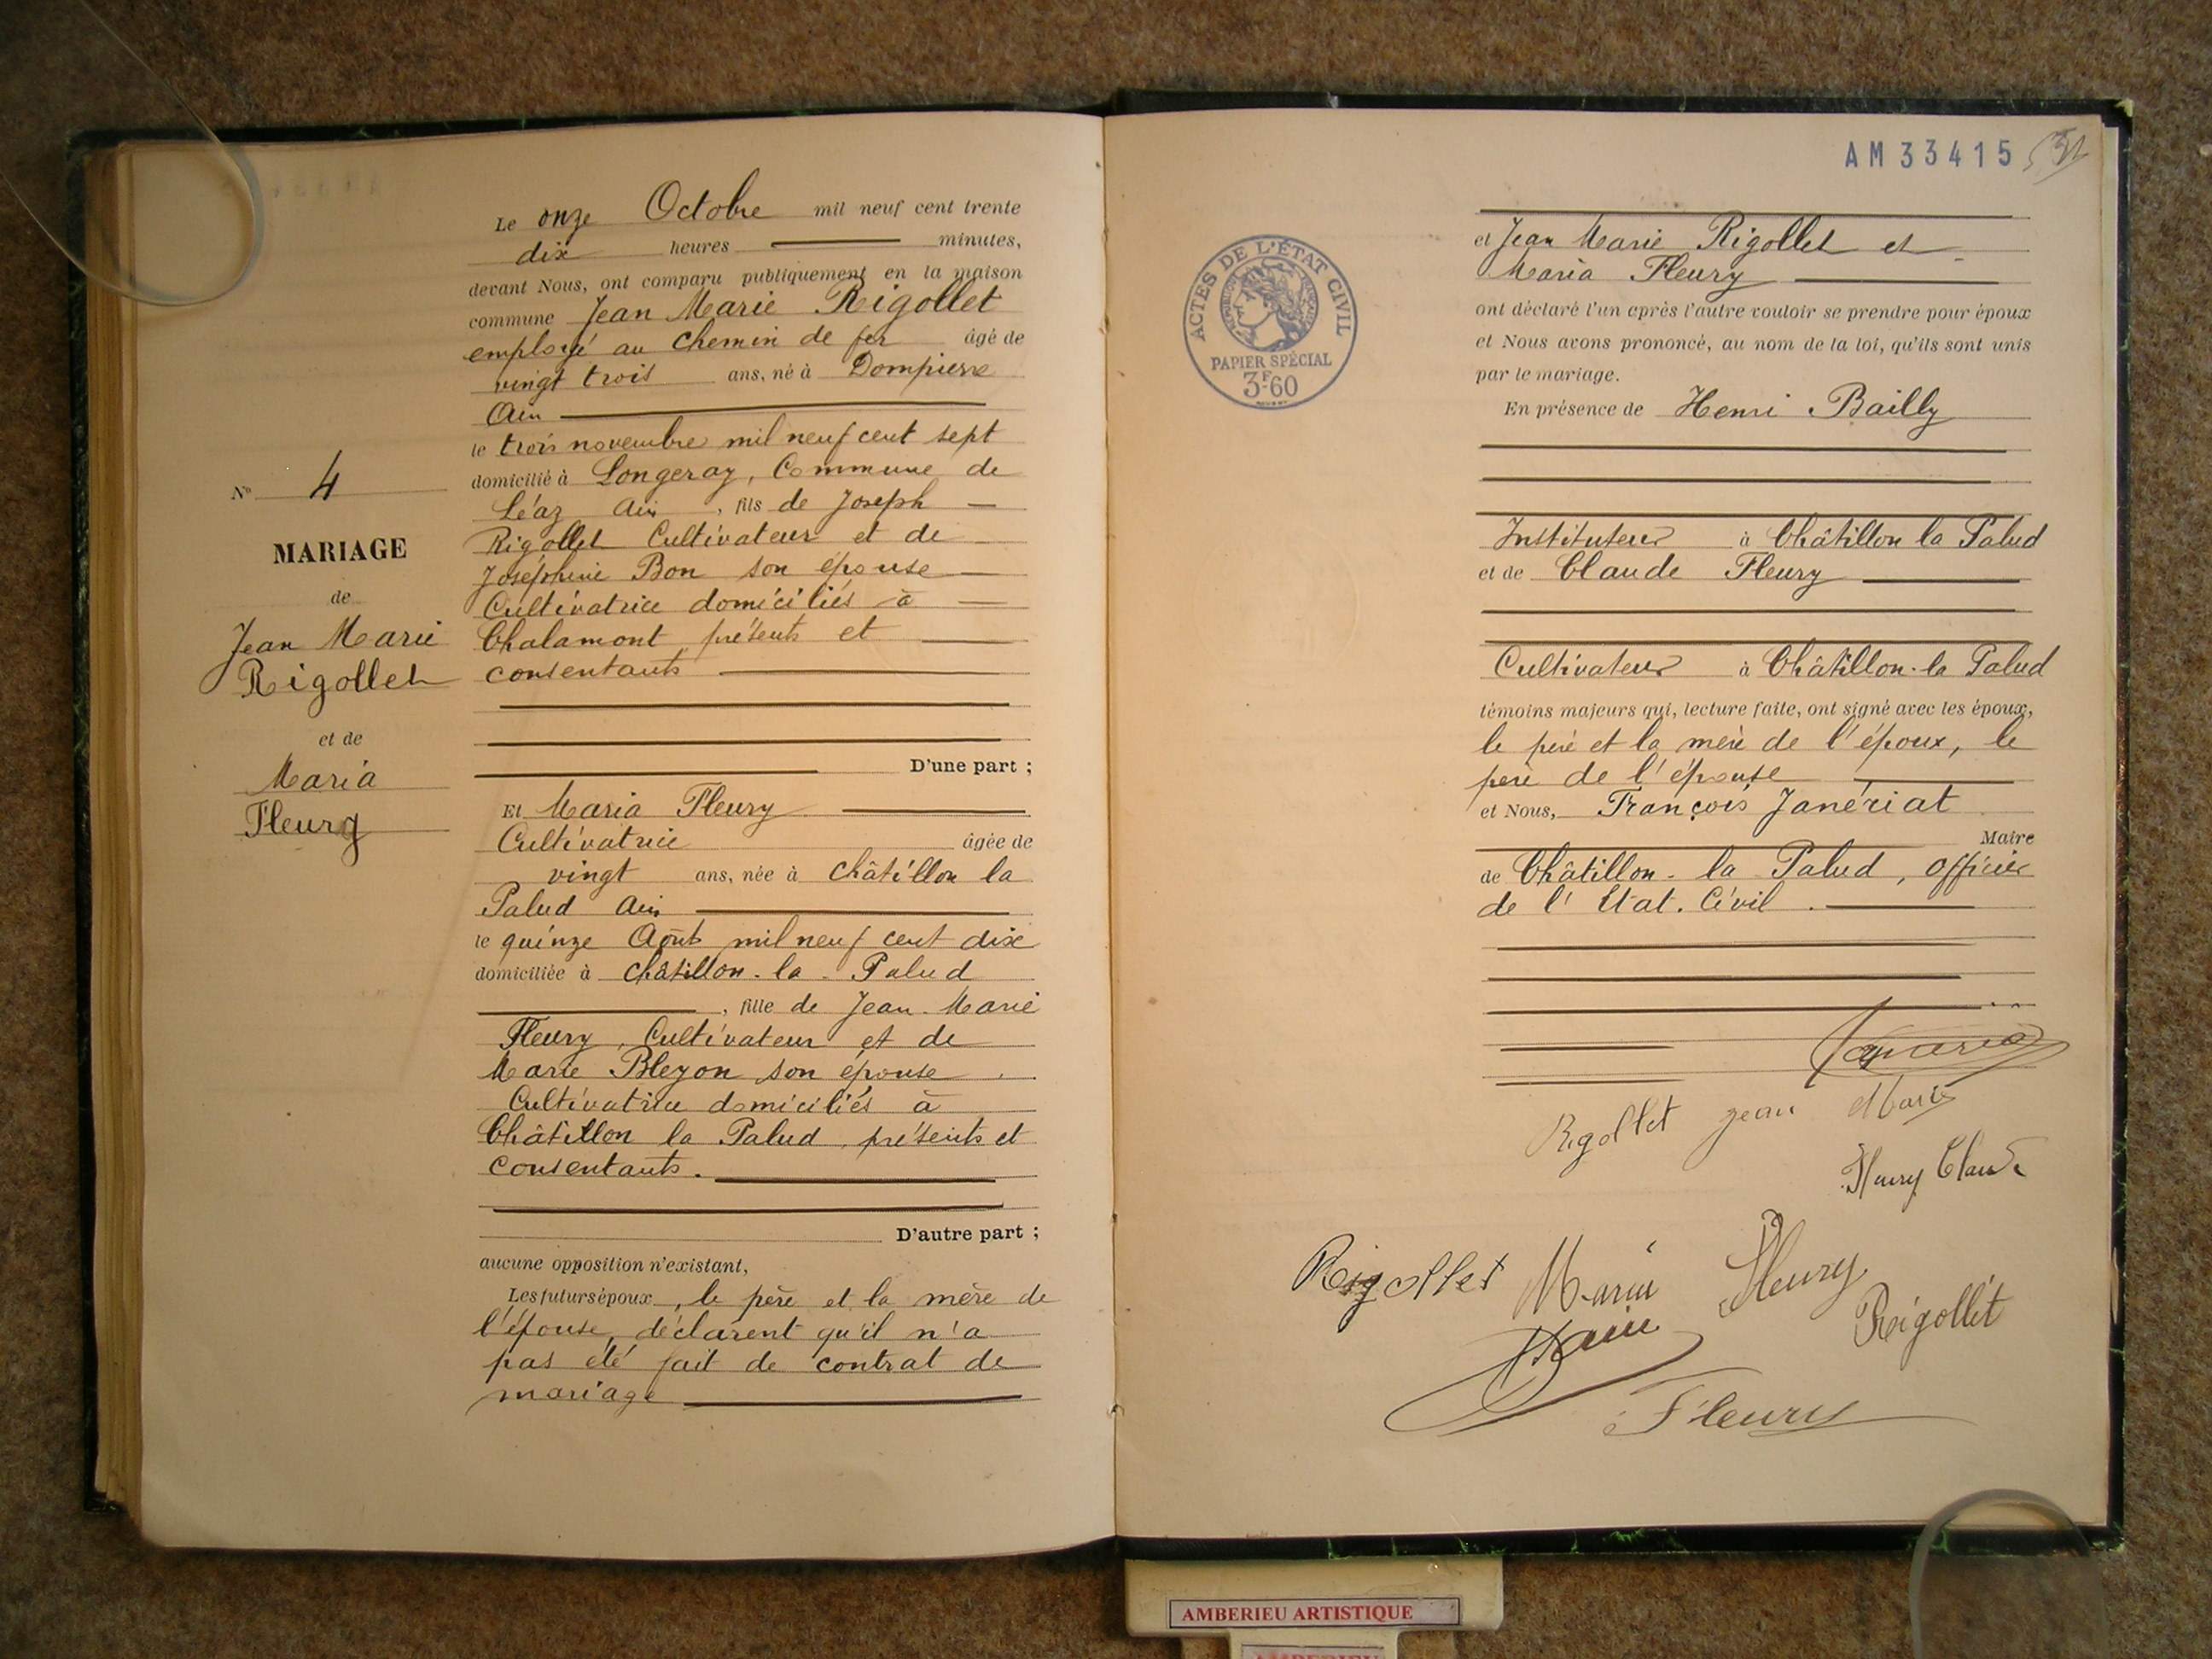 Le onze Octobre mil neuf cent trente
dix heures minutes,
devant Nous, ont comparu publiquement en la maison
commune Jean Marie Rigollet
employé au chemin de fer âgé de
vingt trois ans, né à Dompierre
Ain
le trois novembre mil neuf cent sept
domicilié à Longeray, Commune de
Léaz Ain, fils de Joseph
Rigollet Cultivateur et de
Joséphine Bon son épouse
Cultivatrice domiciliés à
Chalamont présents et
consentants
D'une part ;
N° 4
MARIAGE
de
Jean Marie
Rigollet
et de
Maria
Fleury
Et Maria Fleury
Cultivatrice âgée de
vingt ans, née à Châtillon la
Palud Ain
le quinze Août mil neuf cent dix
domiciliée à Châtillon-la-Palud
, fille de Jean-Marie
Fleury, Cultivateur et de
Marie Bleyon son épouse
Cultivatrice domiciliés à
Châtillon la Palud, présents et
consentants.
D'autre part ;
aucune opposition n'existant,
Les futurs époux, le père et la mère de
l'épouse, déclarent qu'il n'a
pas été fait de contrat de
mariage
AM 33415
ACTES DE L'ÉTAT CIVIL
PAPIER SPÉCIAL
3F60
et Jean Marie Rigollet et
Maria Fleury
ont déclaré l'un après l'autre vouloir se prendre pour époux
et Nous avons prononcé, au nom de la loi, qu'ils sont unis
par le mariage.
En présence de Henri Bailly
Instituteur à Châtillon la Palud
et de Claude Fleury
Cultivateur à Châtillon-la Palud
témoins majeurs qui, lecture faite, ont signé avec les époux,
le père et la mère de l'époux, le
père de l'épouse
et Nous, François Janériat
Maire
de Châtillon-la Palud, officier
de l'Etat-Civil.
Rigollet jean Marie
Fleury Claude
Rigollet Maria Fleury
Rigollet
Fleury
AMBERIEU ARTISTIQUE
AMBERIEU